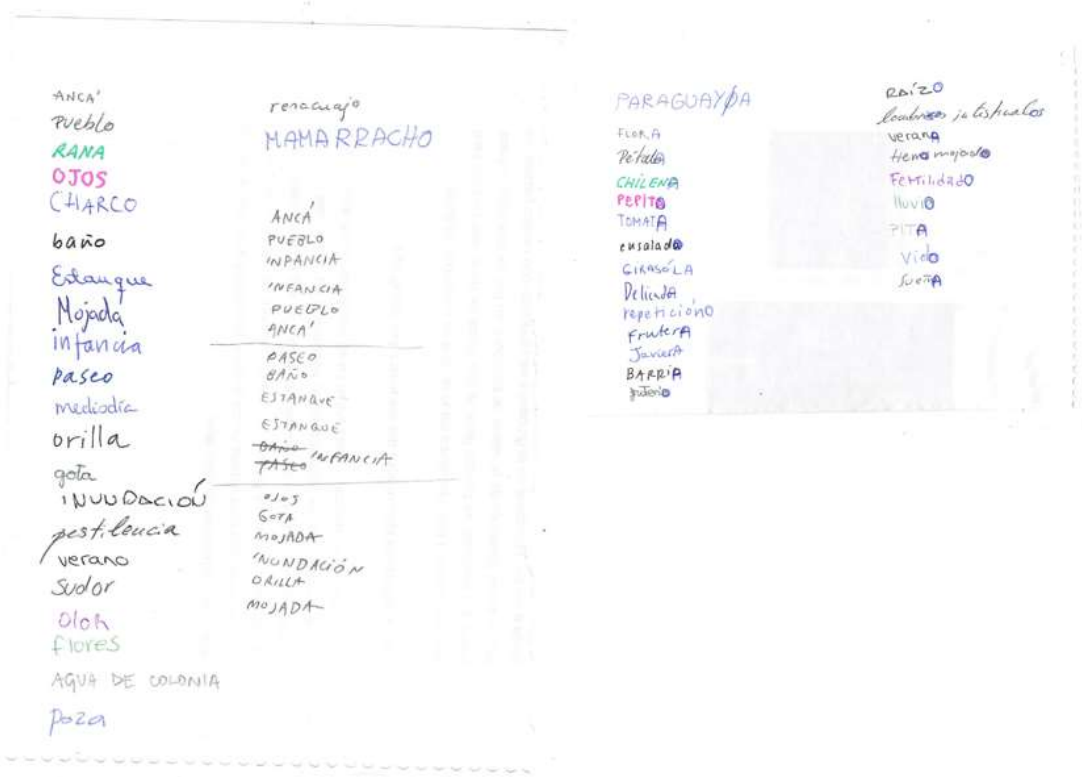 ANCA'
Pueblo
RANA
OJOS
CHARCO
baño
Estanque
Mojada
infancia
paseo
mediodía
orilla
gota
INUNDACIÓN
pestilencia
verano
Sudor
Olor
flores
AGUA DE COLONIA
poza
renacuajo
MAMARRACHO
ANCÁ
PUEBLO
INFANCIA
INFANCIA
PUEBLO
ANCA'
PASEO
BAÑO
ESTANQUE
ESTANQUE
BAÑO
PASEO INFANCIA
OJOS
GOTA
MOJADA
INUNDACIÓN
ORILLA
MOJADA
PARAGUAYOA
FLORA
Pétala
CHILENA
PEPITO
TOMATA
ensalado
GIRASÓLA
Delicada
repeticióno
FruterA
JavierA
BARRIA
RAÍZO
veranA
Heno mojado
FertilidadO
lluvio
PITA
Vido
SueñA